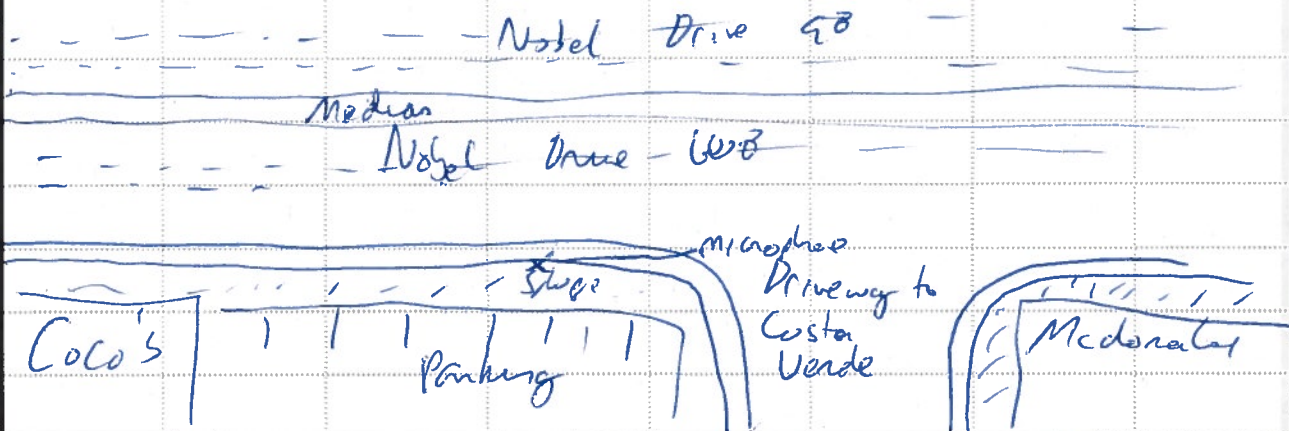 Nobel Drive EB
Median
Nobel Drive - WB
Microphone
Driveway to
Costa
Verde
Coco's
Parking
Mcdonalds